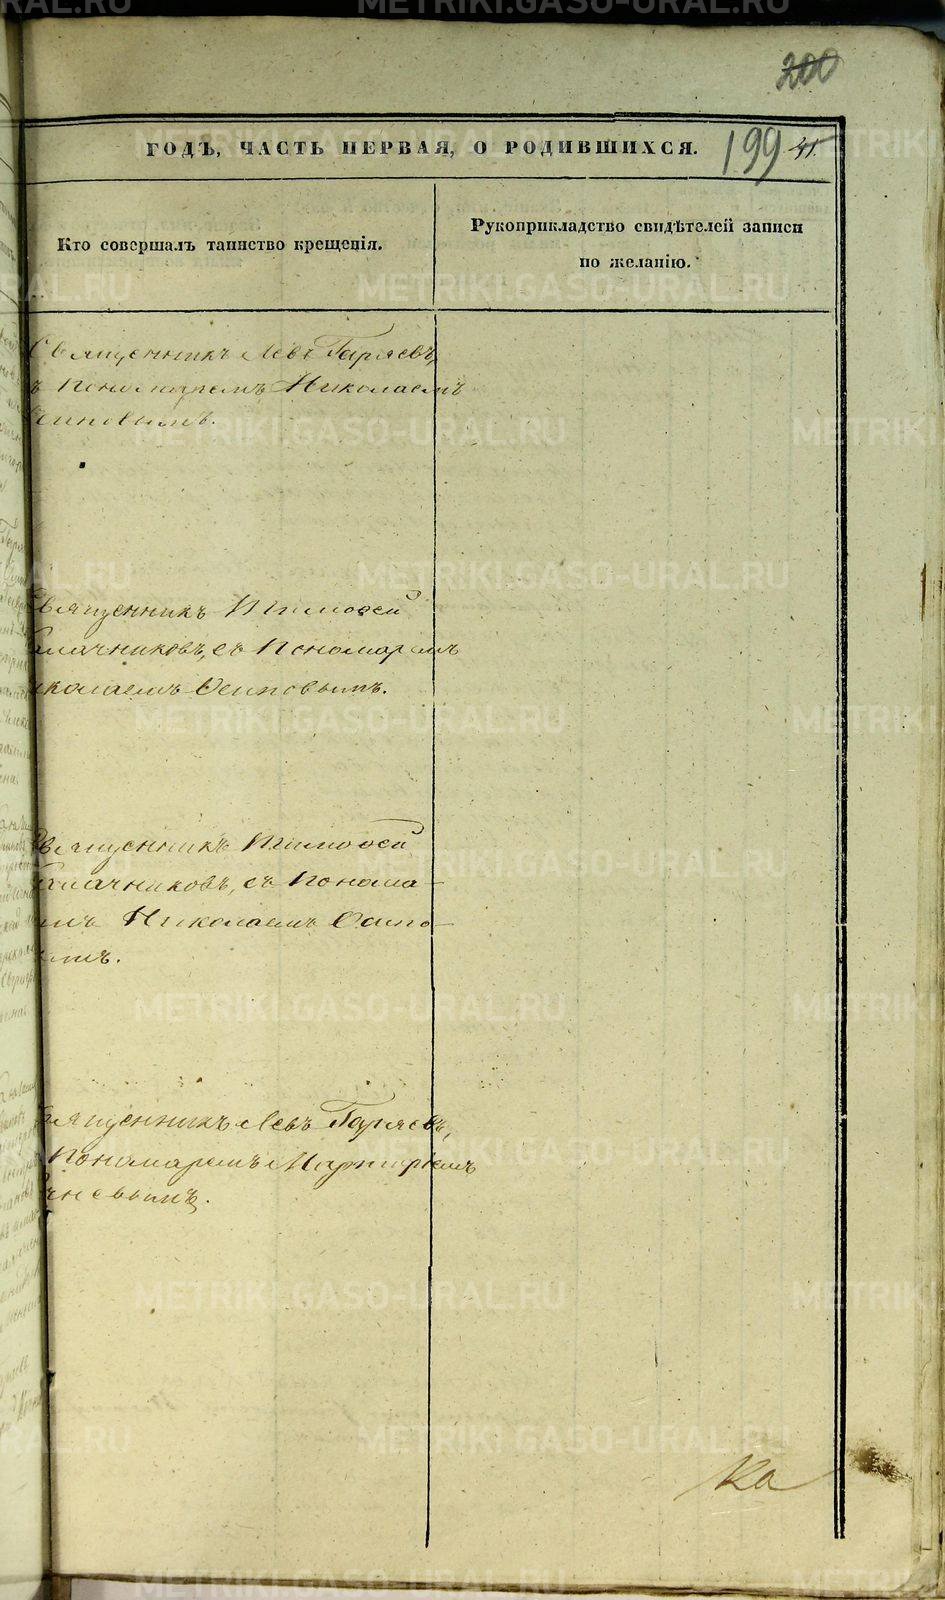 200
ГОДЪ, ЧАСТЬ ПЕРВАЯ, О РОДИВШИХСЯ.
199 41.
Кто совершалъ таинство крещенія.
Рукоприкладство свидѣтелей записи
по желанію.
Священникъ Левъ Гаряевъ,
ъ Пономаремъ Николаемъ
сиповымъ.
Священникъ Тимоѳей
лмачниковъ, съ Пономаремъ
иколаемъ Осиповымъ.
Священникъ Тимоѳей
лмачниковъ, съ Понома-
мъ Николаемъ Осипо-
ымъ.
вященникъ Левъ Гаряевъ,
Пономаремъ Мартиріемъ
невымъ.
Ка
METRIKI.GASO-URAL.RU